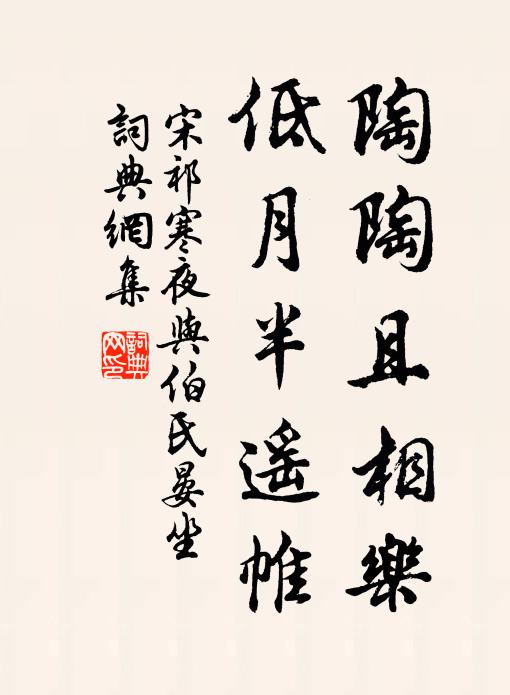 陶陶且相樂
低月半遥帷
宋祁寒夜與伯氏晏坐
詞典網集
詞典網印